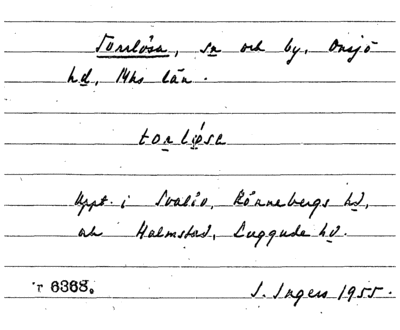 Torrlösa, sn och by, Onsjö
hd, Mhs län.
torlø̀sa
Uppt. i Svalöv, Rönnebergs hd,
och Halmstad, Luggude hd.
r 6368.
I. Ingers 1955.